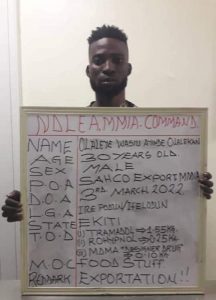 NDLEA, MMIA- COMMAND.
NAME OLALEYE WASIU AYINDE OLALEKAN
AGE 30 YEARS OLD
SEX MALE
P.O.A SAHCO EXPORT MMIA
D.O.A 3RD MARCH 2022
L.G.A IREPODUN/IFELODUN
STATE EKITI
T.O.D I) TRAMADOL → 1.55KG
II) ROHYPNOL → 0.75KG
III) MDMA
→ 0.10KG
M.O.C FOOD STUFF
REMARK EXPORTATION!!